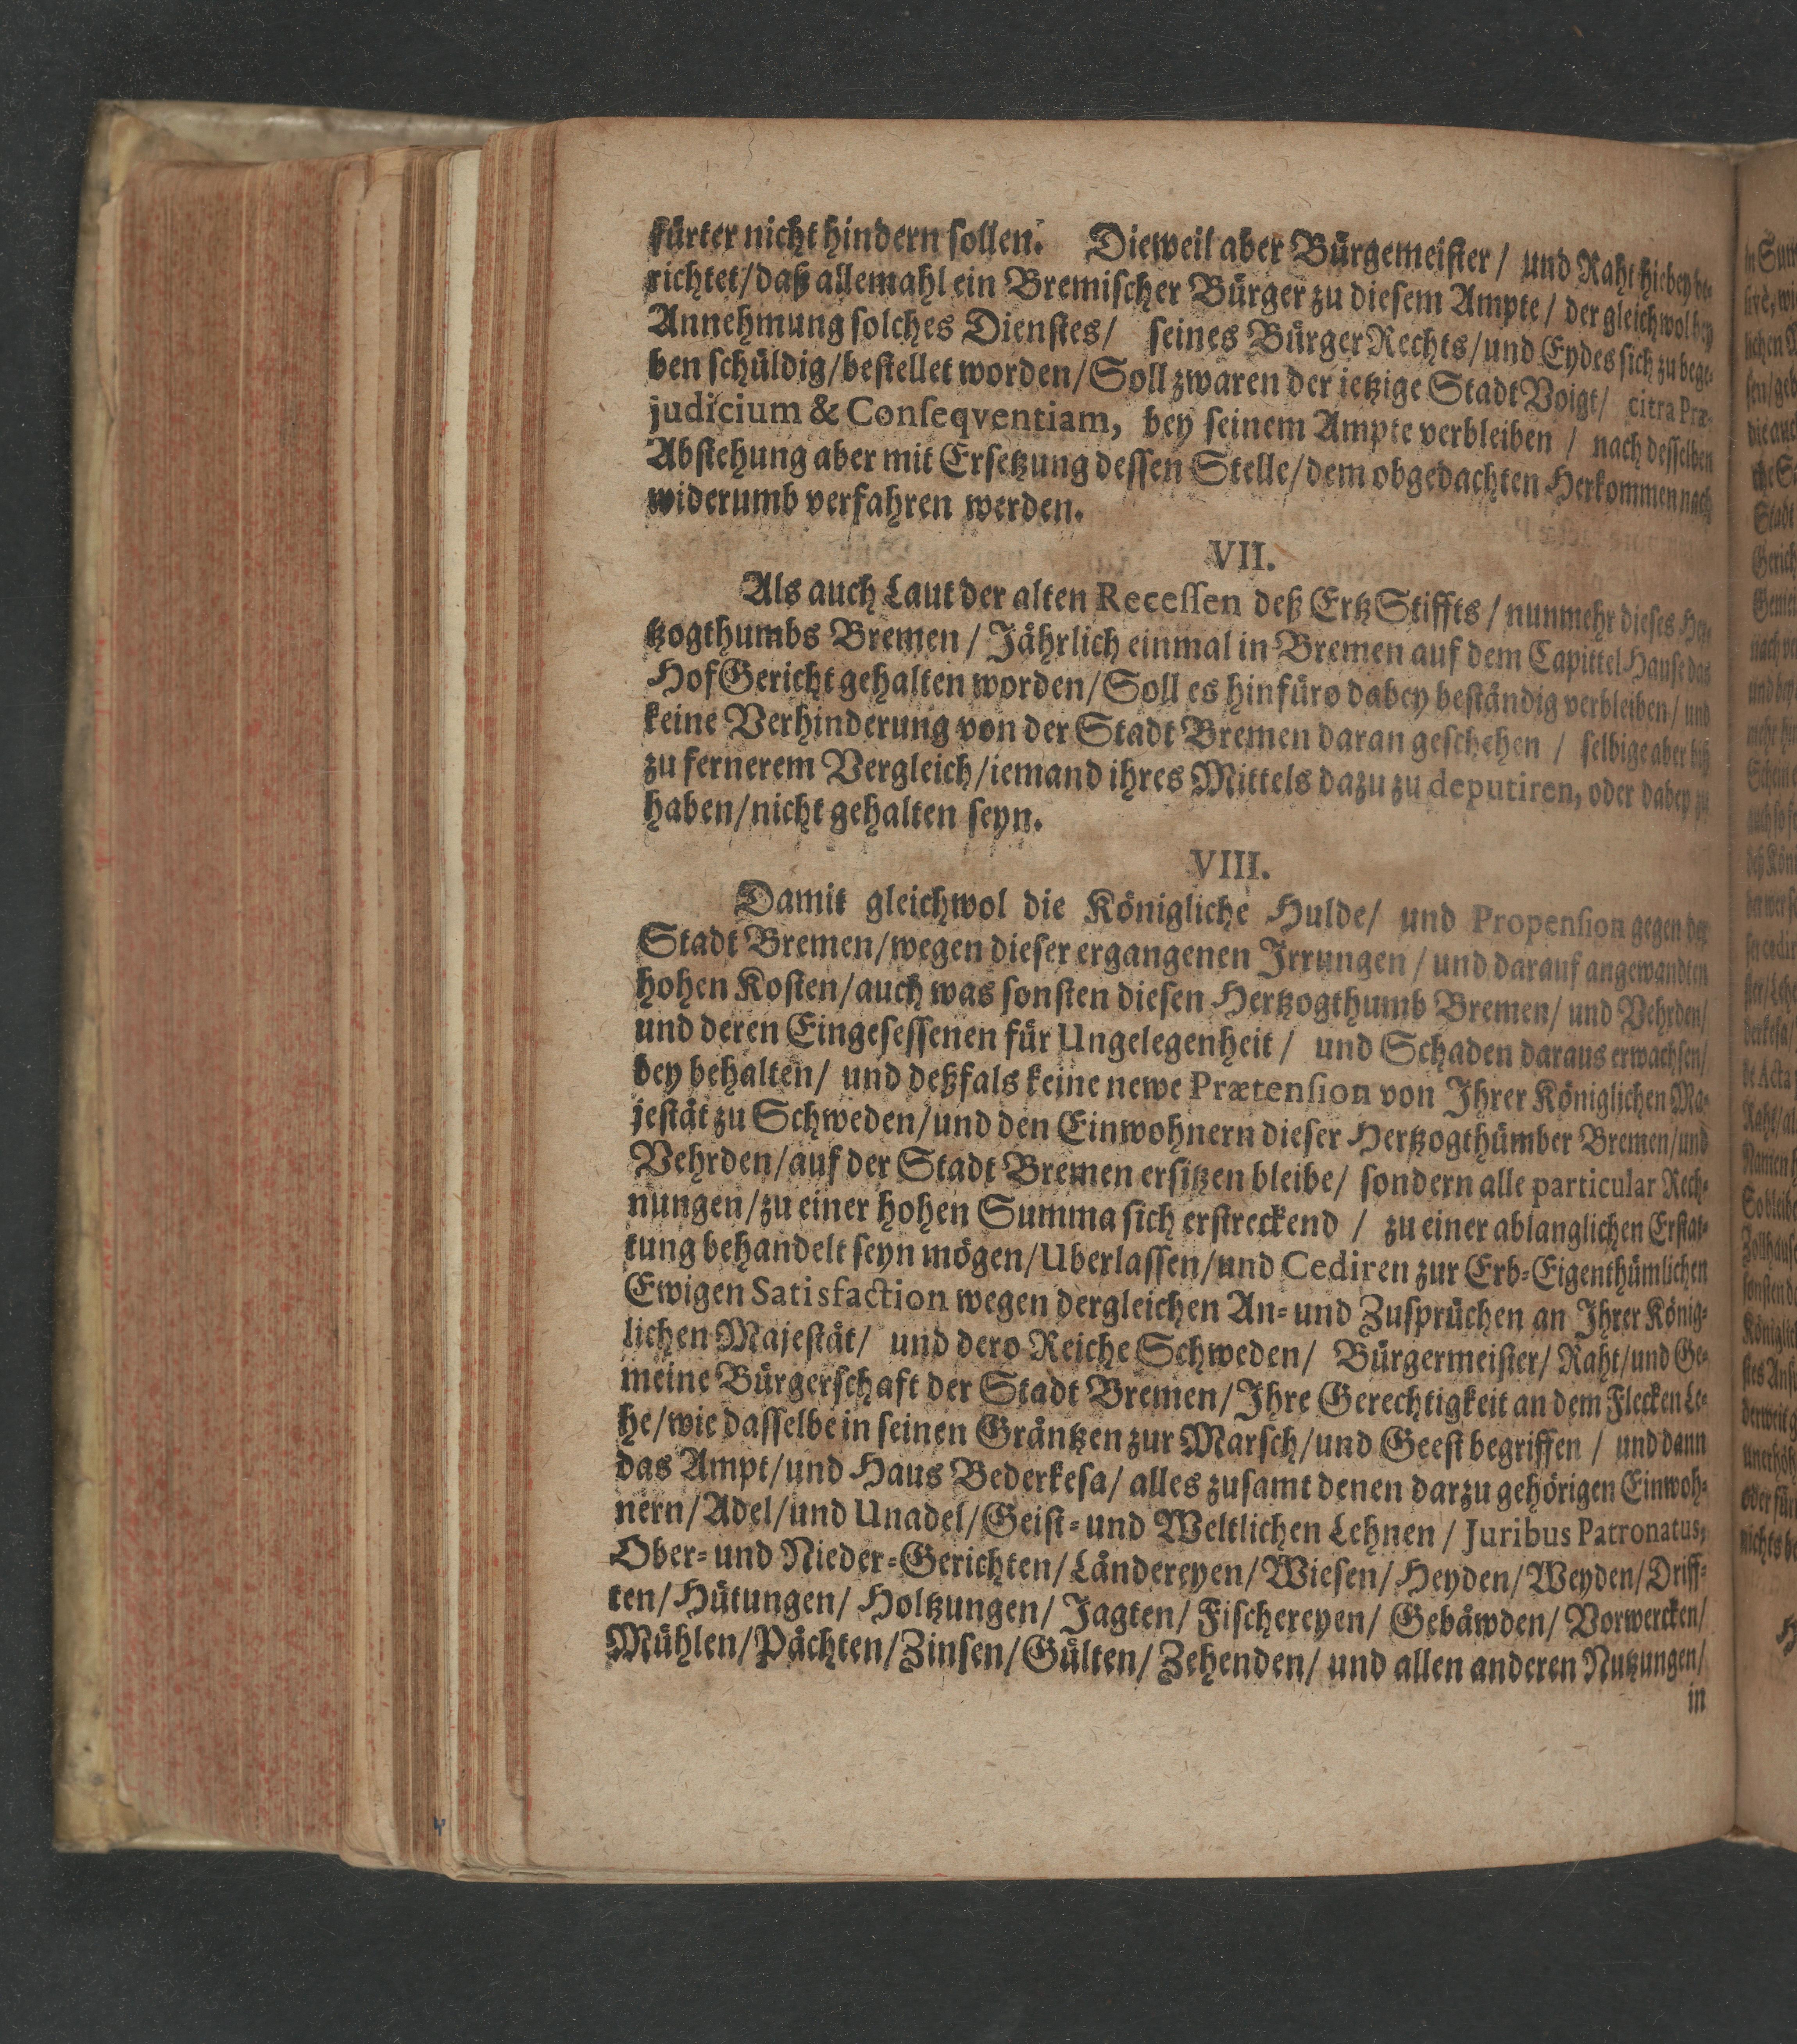 fürter nicht hindern sollen. Dieweil aber Bürgemeister / und Raht hiebey be-
richtet/daß allemahl ein Bremischer Bürger zu diesem Ampte / der gleichwol bey
Annehmung solches Dienstes/ seines Bürger Rechts/und Eydes sich zu bege-
ben schüldig/bestellet worden/Soll zwaren der ietzige Stadt Voigt/ citra Præ-
judicium & Conseqventiam, bey seinem Ampte verbleiben / nach desselben
Abstehung aber mit Ersetzung dessen Stelle/dem obgedachten Herkommen nach
widerumb verfahren werden.
VII.
Als auch Laut der alten Recessen deß Ertz Stiffts / nunmehr dieses Her-
tzogthumbs Bremen / Jährlich einmal in Bremen auf dem Capittel-Hause das
Hof Gericht gehalten worden/Soll es hinfüro dabey beständig verbleiben/ und
keine Verhinderung von der Stadt Bremen daran geschehen / selbige aber biß
zu fernerem Vergleich/iemand ihres Mittels dazu zu deputiren, oder dabey zu
haben/nicht gehalten seyn.
VIII.
Damit gleichwol die Königliche Hulde/ und Propension gegen der
Stadt Bremen/wegen dieser ergangenen Irrungen / und darauf angewandten
hohen Kosten/auch was sonsten diesen Hertzogthumb Bremen/ und Vehrden/
und deren Eingesessenen für Ungelegenheit / und Schaden daraus erwachsen/
bey behalten/ und deßfals keine newe Prætension von Ihrer Königlichen Ma-
jestät zu Schweden/und den Einwohnern dieser Hertzogthümber Bremen/und
Vehrden/auf der Stadt Bremen ersitzen bleibe/ sondern alle particular Rech-
nungen/zu einer hohen Summa sich erstreckend / zu einer ablanglichen Erstat-
tung behandelt seyn mögen/Uberlassen/und Cediren zur Erb-Eigenthümlichen
Ewigen Satisfaction wegen dergleichen An- und Zusprüchen an Ihrer König-
lichen Majestät/ und dero Reiche Schweden/ Bürgermeister/ Raht/und Ge-
meine Bürgerschaft der Stadt Bremen/Ihre Gerechtigkeit an dem Flecken Le-
he/wie dasselbe in seinen Gräntzen zur Marsch/und Geest begriffen / und dann
das Ampt/und Haus Bederkesa/ alles zusamt denen darzu gehörigen Einwoh-
nern/Adel/und Unadel/Geist- und Weltlichen Lehnen / Juribus Patronatus,
Ober- und Nieder-Gerichten/Ländereyen/Wiesen/Heyden/Weyden/Driff-
ten/Hütungen/ Holtzungen/ Jagten/ Fischereyen/ Gebäwden/ Vorwercken/
Mühlen/Pächten/Zinsen/Gülten/ Zehenden/ und allen anderen Nutzungen/
in